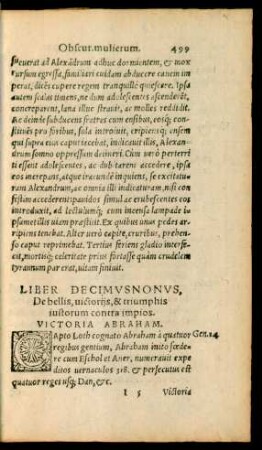 Obscur. mulierum. 499
sueuerat ad Alexãdrum adhuc dormientem, & mox
rursum egressa, famulari cuidam abducere canem im
perat, dicẽs cupere regem tranquillè quiescere. Ipsa
autem scalas timens, ne dum adolescentes ascenderẽt,
concreparent, lana illas strauit, ac molles reddidit.
Ac deinde subducens fratres cum ensibus, eosq; con-
stitués pro foribus, sola introiuit, eripiensq; ensem
qui supra eius caput iacebat, indicauit illis, Alexan-
drum somno oppressum detineri. Cum verò perterri
ti essent adolescentes, ac dubitarent accedere, ipsa
eos increpans, atque iracundè iniquens, se excitatu
ram Alexandrum, ac omnia illi indicaturam, nisi con
festim accederent: pauidos simul ac erubescentes eos
introduxit, ad lectulumq; cum incensa lampade i-
psamet illis uiam præstitit. Ex quibus unus pedes ar-
ripiens tenebat. Alter uerò capite, cruribus, prehen-
so caput reprimebat. Tertius feriens gladio interfe-
cit, mortisq; celeritate prius fortasse quàm crudelem
tyrannum par erat, uitam finiuit.
LIBER DECIMVSNONVS,
De bellis, uictorijs, & triumphis
iustorum contra impios.
VICTORIA ABRAHAM.
CApto Loth cognato Abraham à quatuor Gen. 14
regibus gentium, Abraham inito fœde-
re cum Eschol et Aner, numerauit expe
ditos uernaculos 318. & persecutus est
quatuor reges usq; Dan, &c.
I i 5 Victoria